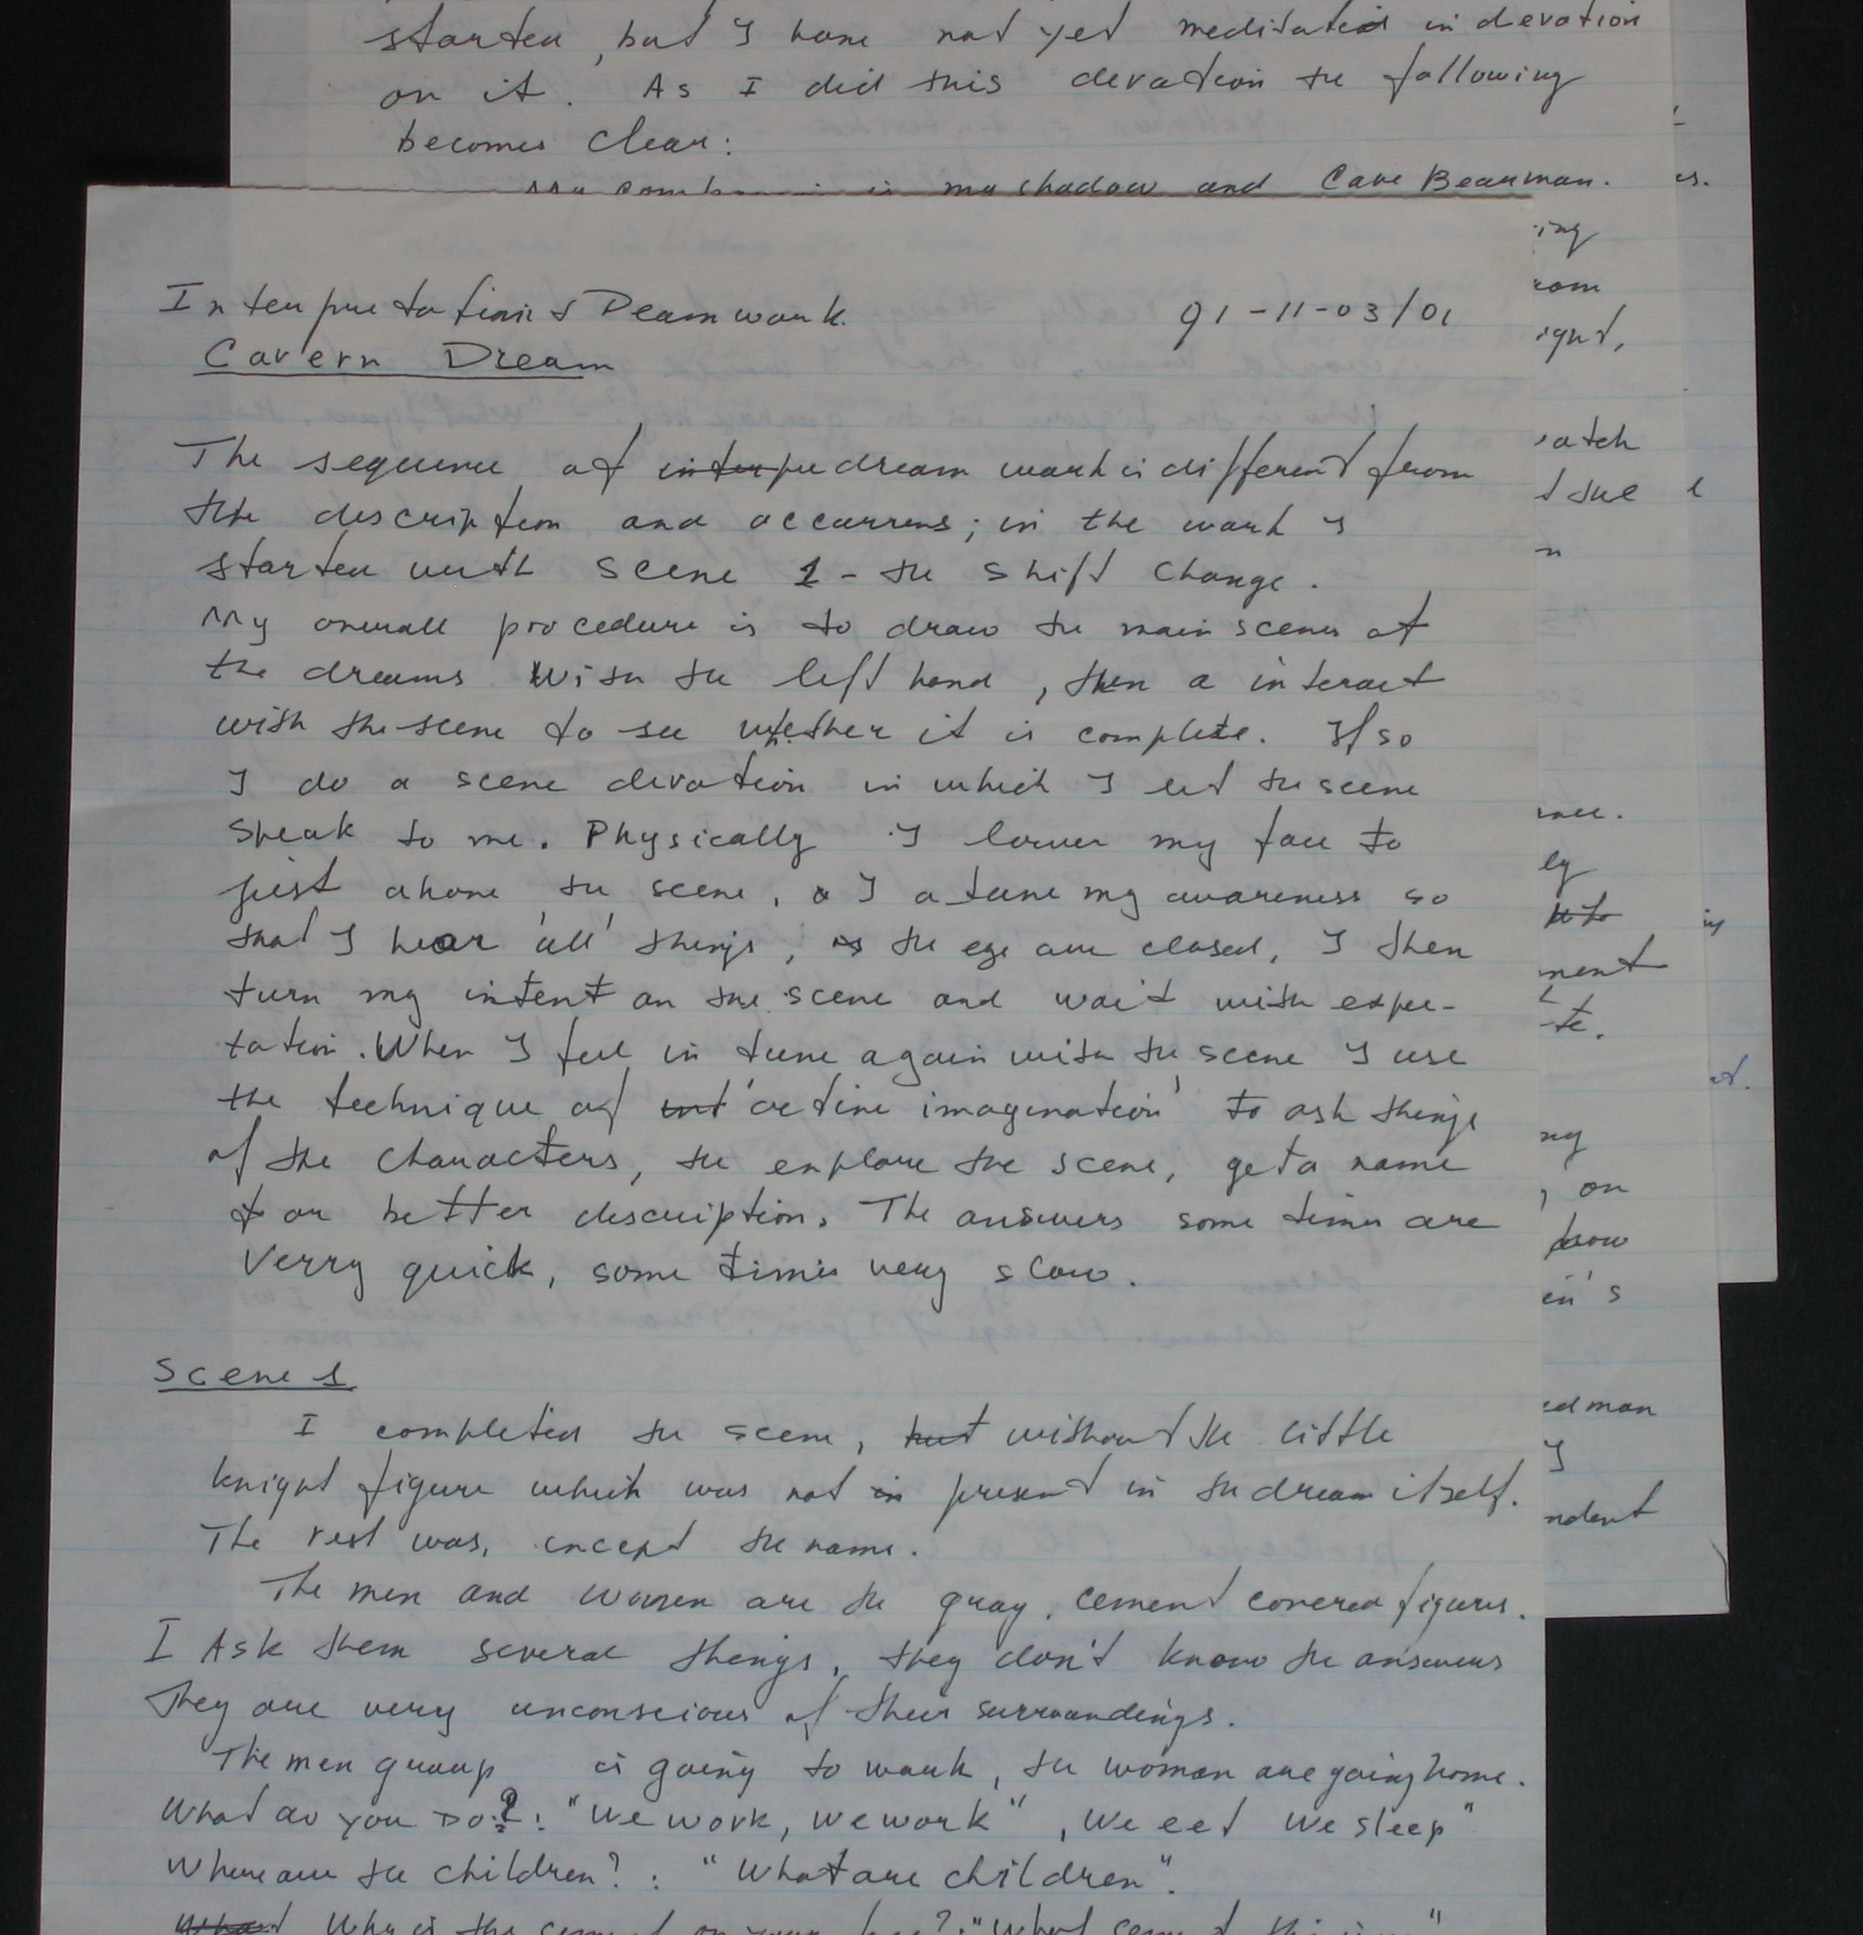 started, but I have not yet meditated in devotion
on it. As I did this devotion the following
becomes clear:
is my shadow and Cave Bearman.
es.
ing
rom
ight,
Interpretations & Deamwork. 91-11-03/01
Cavern Dream
The sequence of interpre dream work is different from
the description and occurrens; in the work I
started with scene 1 - the shift change.
My overall procedure is to draw the main scenes of
the dreams with the left hand, then a interact
with the scene to see whether it is complete. If so
I do a scene devotion in which I let the scene
speak to me. Physically I lower my face to
just above the scene, & I atune my awareness so
that I hear 'all' things, as the eye are closed, I then
turn my intent on the scene and wait with expec-
tation. When I feel in tune again with the scene I use
the technique of int 'active imagination' to ask things
of the characters, the explore the scene, get a name
& or better description. The answers some times are
Verry quick, some times very slow.
atch
t the
n
ey
ment
te.
ng
, on
how
en's
ed man
I
ndent
Scene 1
I completed the scene, but without the little
knight figure which was not in present in the dream itself.
The rest was, except the name.
The men and women are the gray, cement covered figures.
I Ask them several things, they don't know the answers
They are very unconscious of their surroundings.
The men group is going to work, the woman are going home.
What do you Do?: "We work, we work", We eet We sleep"
Where are the children?: "What are children".
What Why is the cement on your face?: "What cement